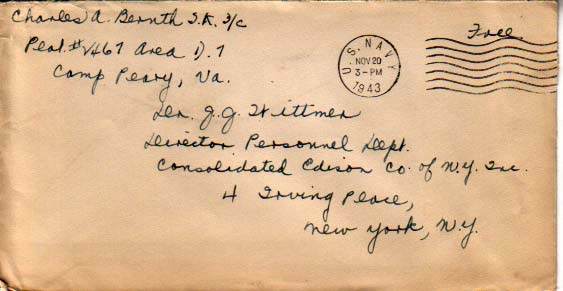 Charles A. Bernth S.K. 3/c
Plat. #V467 Area D.7
Camp Peary, Va.
Free
U.S. NAVY
NOV 20
3-PM
1943
Dr. J.J. Wittmer
Director Personnel Dept.
Consolidated Edison Co. of N.Y. Inc.
4 Irving Place,
New York, N.Y.